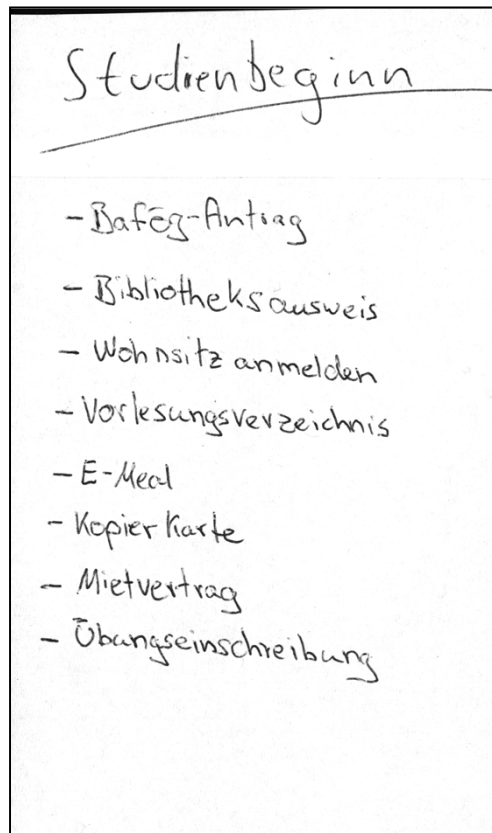 Studienbeginn
- Bafög-Antrag
- Bibliotheksausweis
- Wohnsitz anmelden
- Vorlesungsverzeichnis
- E-Meal
- Kopierkarte
- Mietvertrag
- Übungseinschreibung